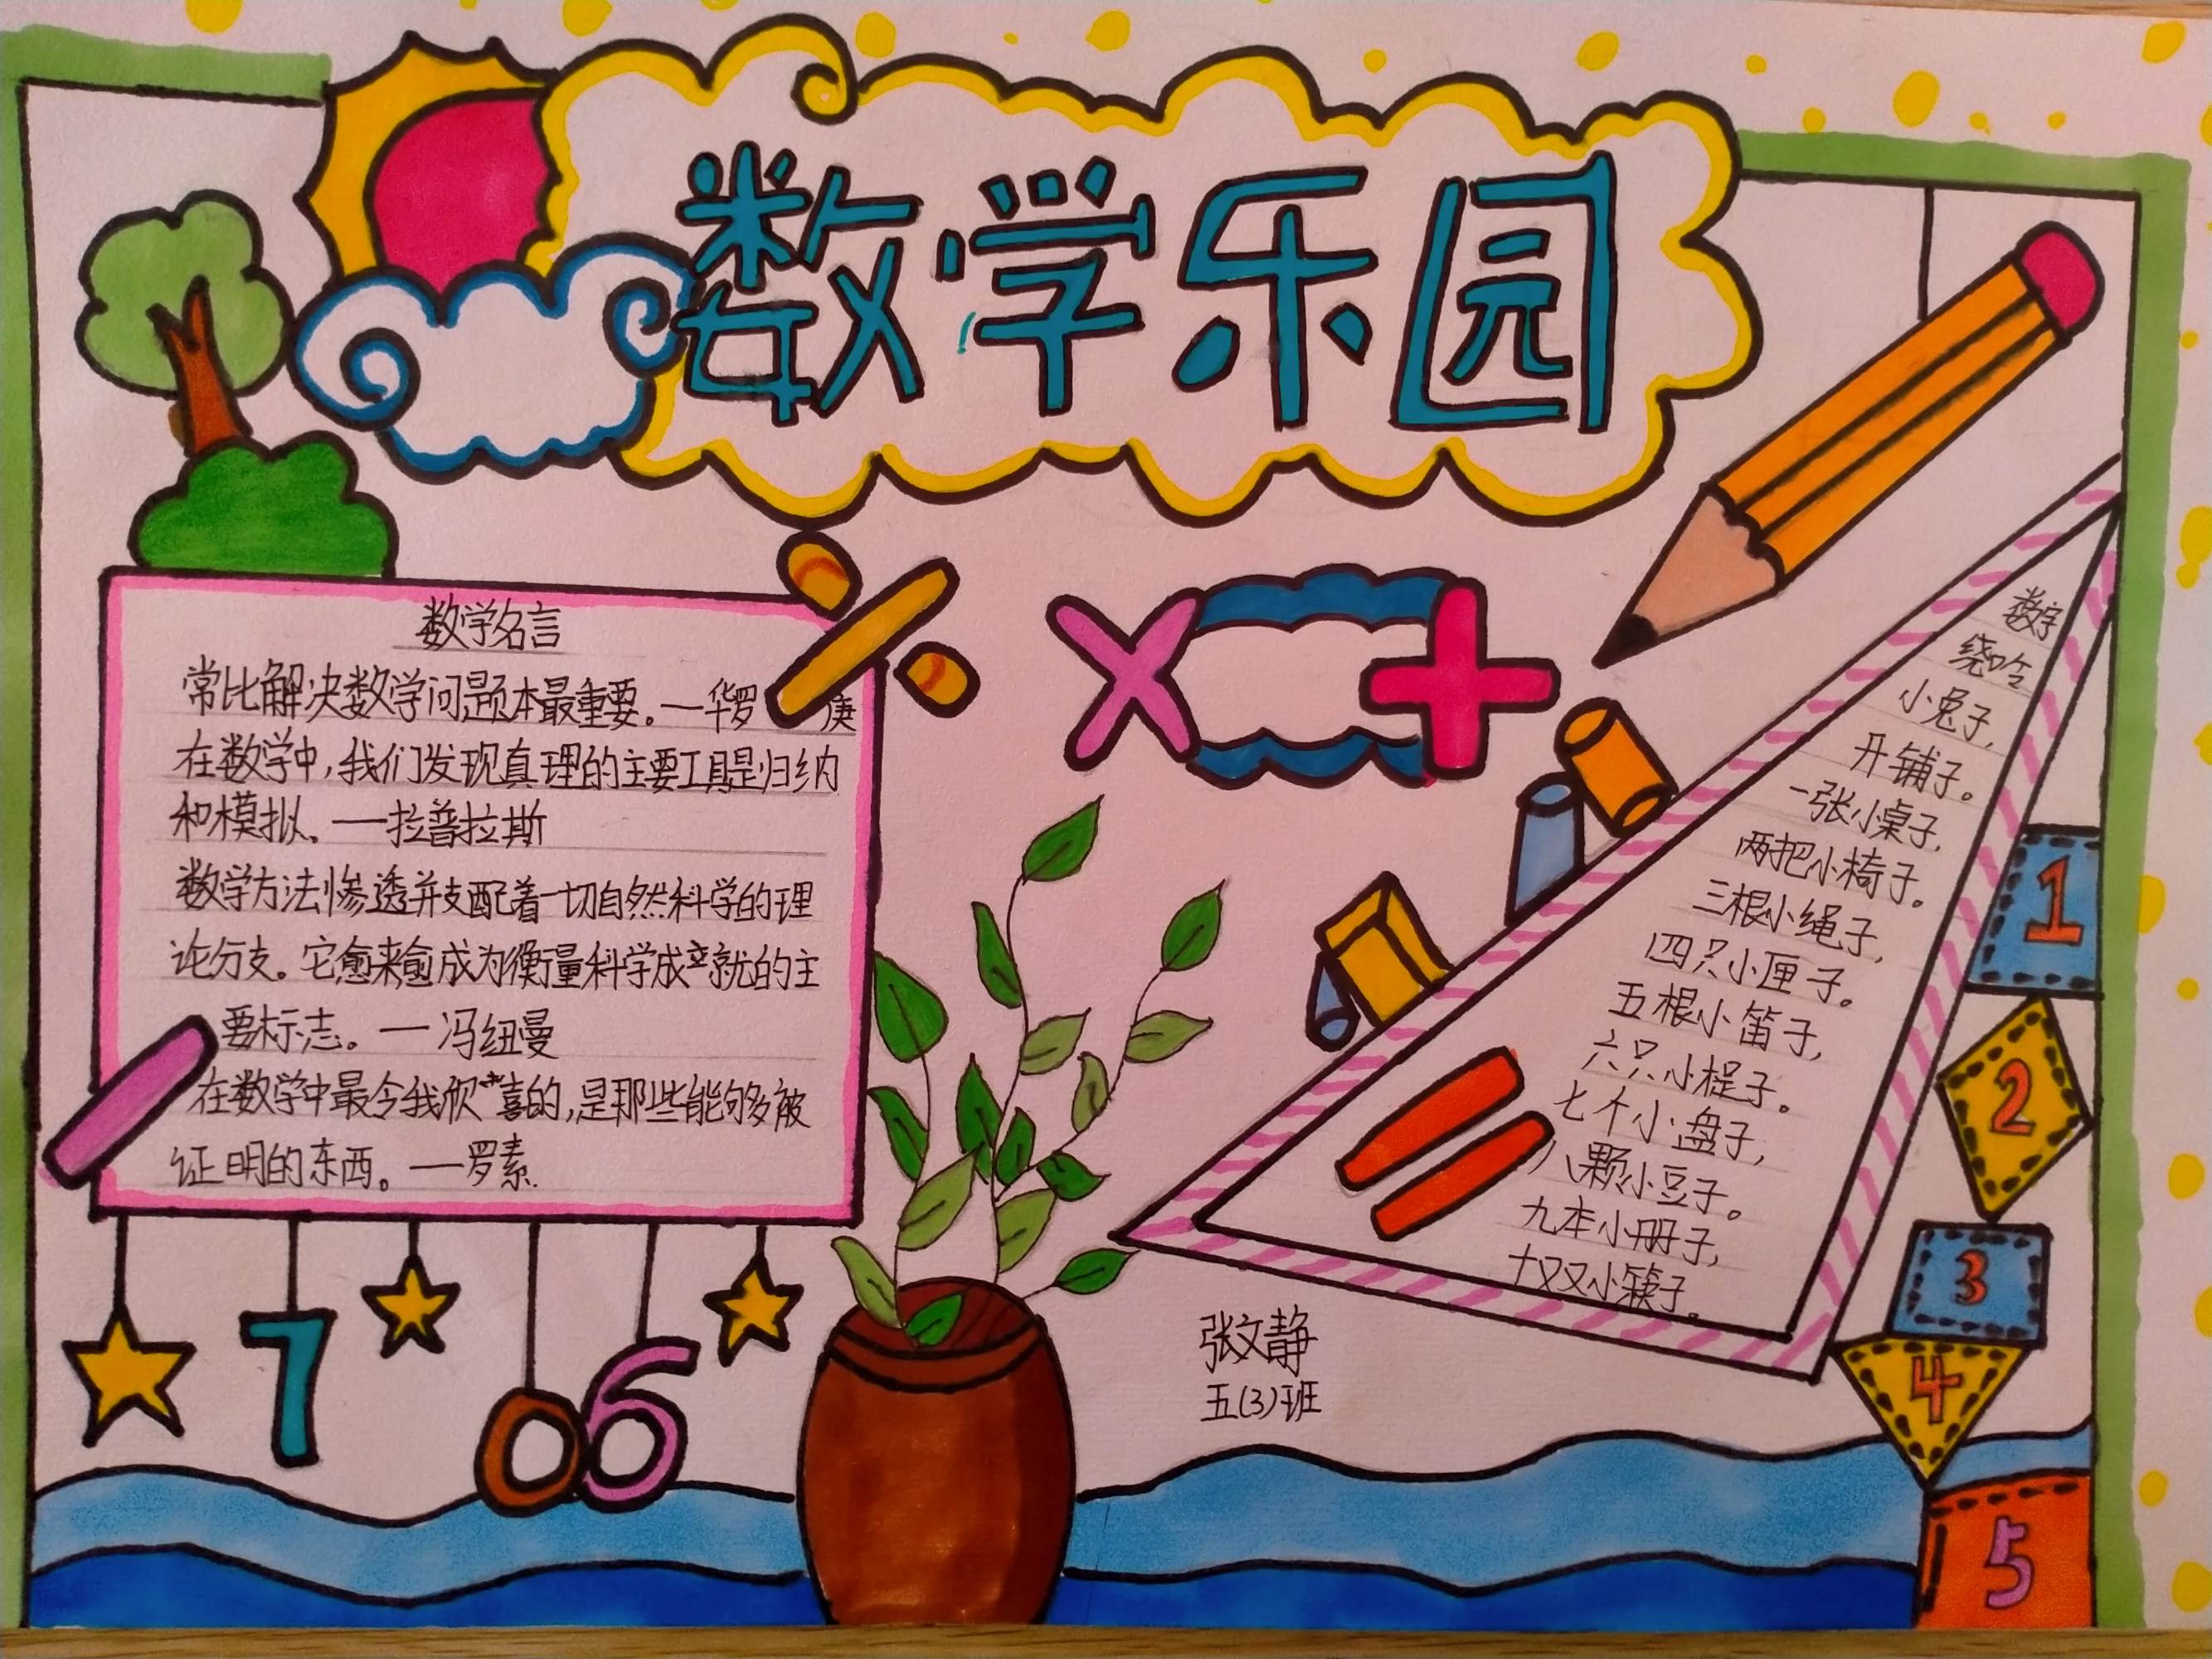 数学乐园
数学名言
常比解决数学问题本最重要。—华罗庚
在数学中,我们发现真理的主要工具是归纳
和模拟。—拉普拉斯
数学方法惨透并支配着一切自然科学的理
论分支。它愈来愈成为衡量科学成就的主
要标志。—冯纽曼
在数学中最令我欣喜的,是那些能够被
证明的东西。—罗素.
÷
×
+
数字
绕吟
小兔子,
开铺子。
一张小桌子,
两把小椅子。
三根小绳子,
四只小匣子。
五根小笛子,
六只小梶子。
七个小盘子,
八颗小豆子。
九本小册子,
十双小筷子。
1
2
3
4
5
7
0
6
张文静
五(3)班